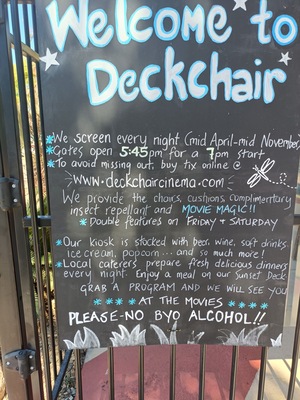 Welcome to
Deckchair
*We screen every night (mid April-mid November)
*Gates open 5:45pm for a 7pm start
*To avoid missing out, buy tix online @
www.deckchaircinema.com
We provide the chairs, cushions, complimentary
insect repellant and MOVIE MAGIC!!
*Double features on FRIDAY + SATURDAY
*Our kiosk is stocked with beer, wine, soft drinks
ice cream, popcorn... and so much more!
*Local caterers prepare fresh delicious dinners
every night. Enjoy a meal on our Sunset Deck
GRAB A PROGRAM AND WE WILL SEE YOU
****AT THE MOVIES****
PLEASE-NO BYO ALCOHOL!!